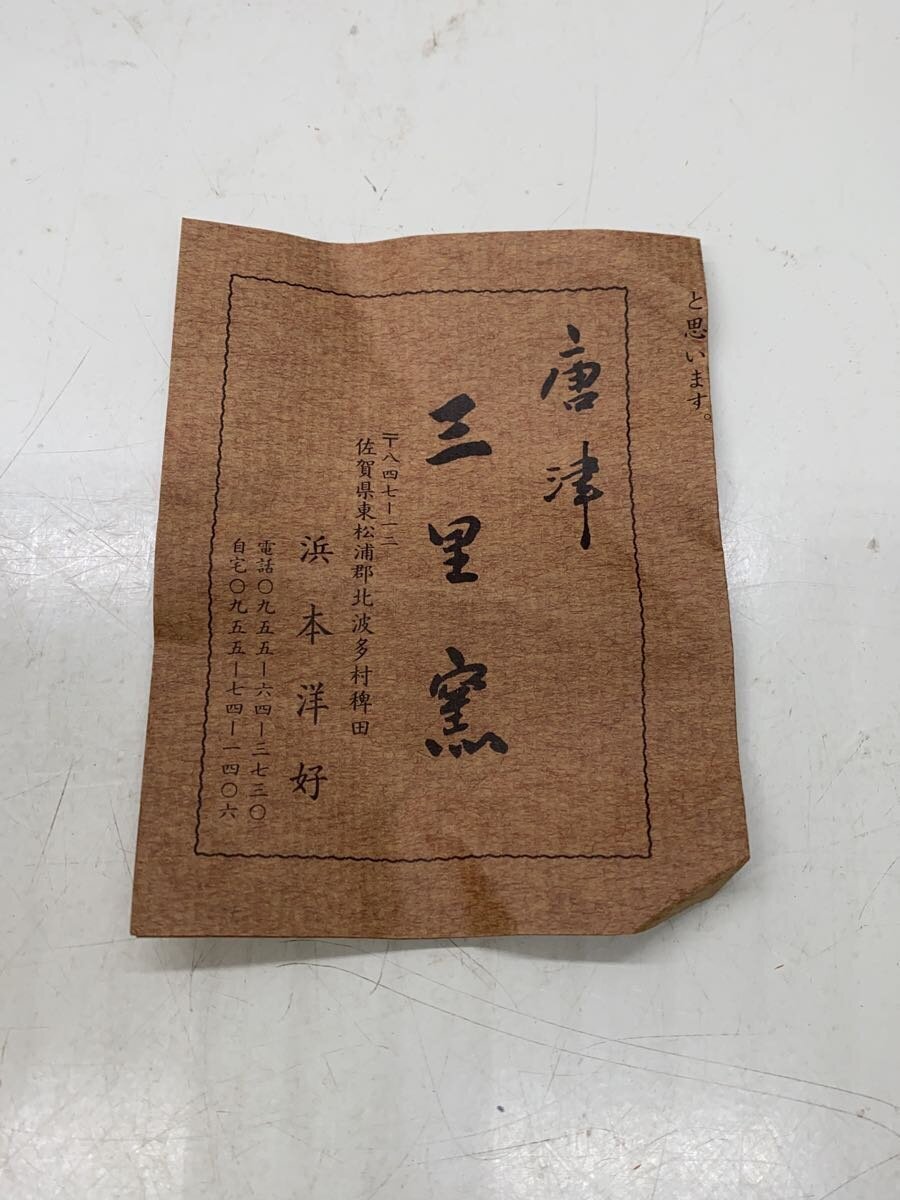 と思います。
唐津
三里窯
〒八四七—一二
佐賀県東松浦郡北波多村稗田
浜本洋好
電話〇九五五—六四—二七三〇
自宅〇九五五—七四—一四〇六